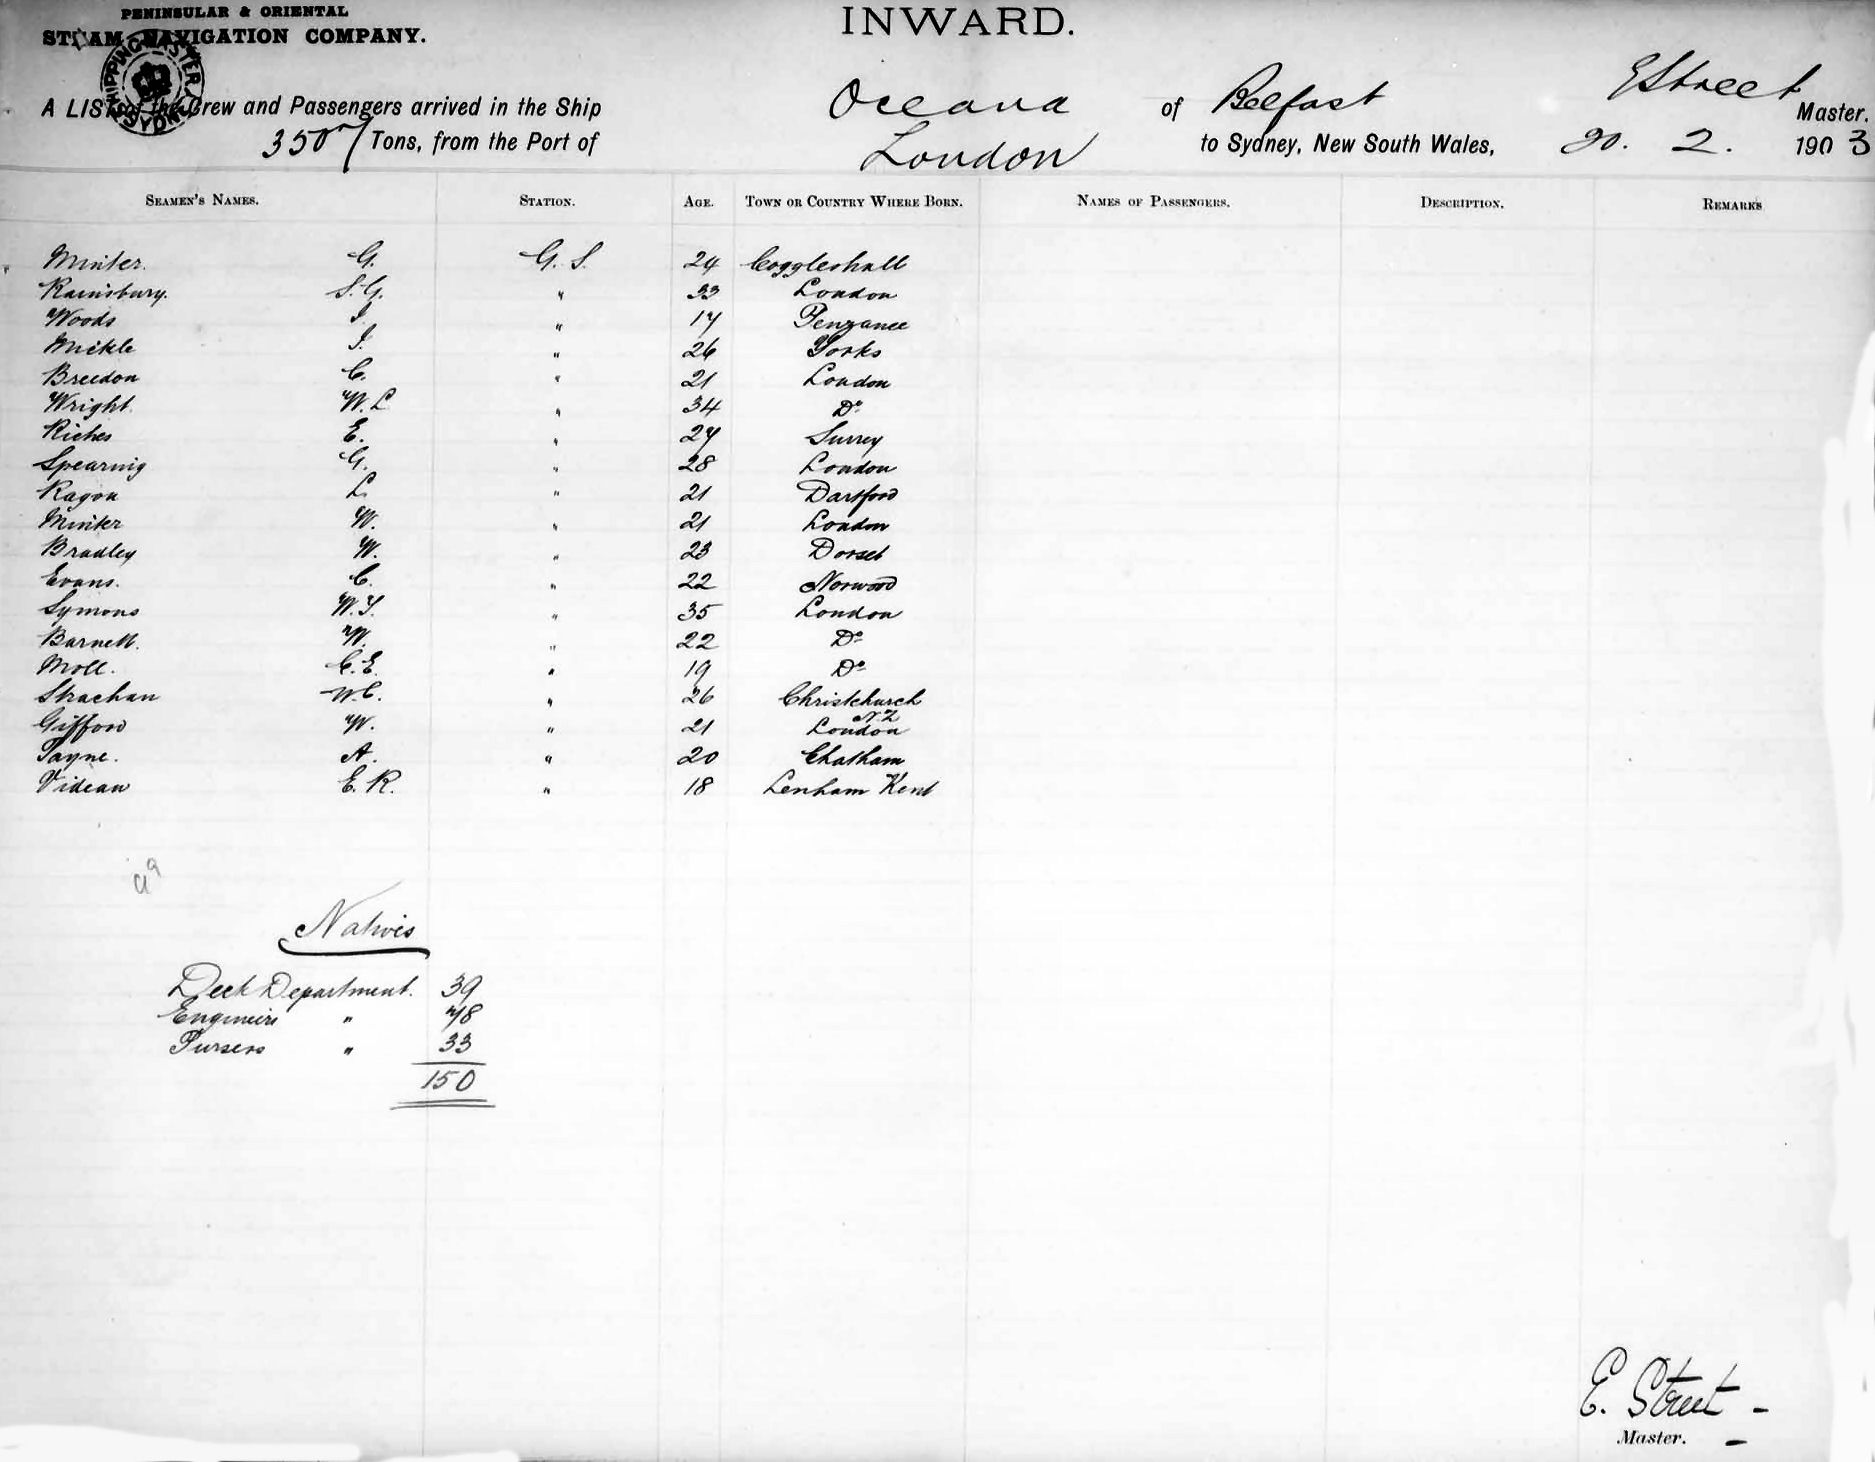 PENINSULAR & ORIENTAL
STEAM NAVIGATION COMPANY.
INWARD.
SHIPPING MASTER SYDNEY
A LIST of the Crew and Passengers arrived in the Ship Oceana of Belfast E Street Master.
3507 Tons, from the Port of London to Sydney, New South Wales, 20. 2. 1903
SEAMEN'S NAMES. STATION. AGE. TOWN OR COUNTRY WHERE BORN. NAMES OF PASSENGERS. DESCRIPTION. REMARKS
Minter. G. G. S. 24 Coggleshall
Rainsbury. S. G. " 33 London
Woods J. " 17 Penzance
Mickle J. " 26 Yorks
Breedon C. " 21 London
Wright. W. L " 34 Do
Riches E. " 27 Surrey
Spearing G. " 28 London
Ragon L " 21 Dartford
Minter W. " 21 London
Bradley W. " 23 Dorset
Evans. C. " 22 Norwood
Symons W. T. " 35 London
Barnett. W. " 22 Do
Moll. C. E. " 19 Do
Strachan W. C. " 26 Christchurch
N.Z
Gifford W. " 21 London
Payne. A. " 20 Chatham
Videan E. R. " 18 Lenham Kent
Natives
Deck Department. 39
Engineers " 78
Pursers " 33
150
E. Street
Master.